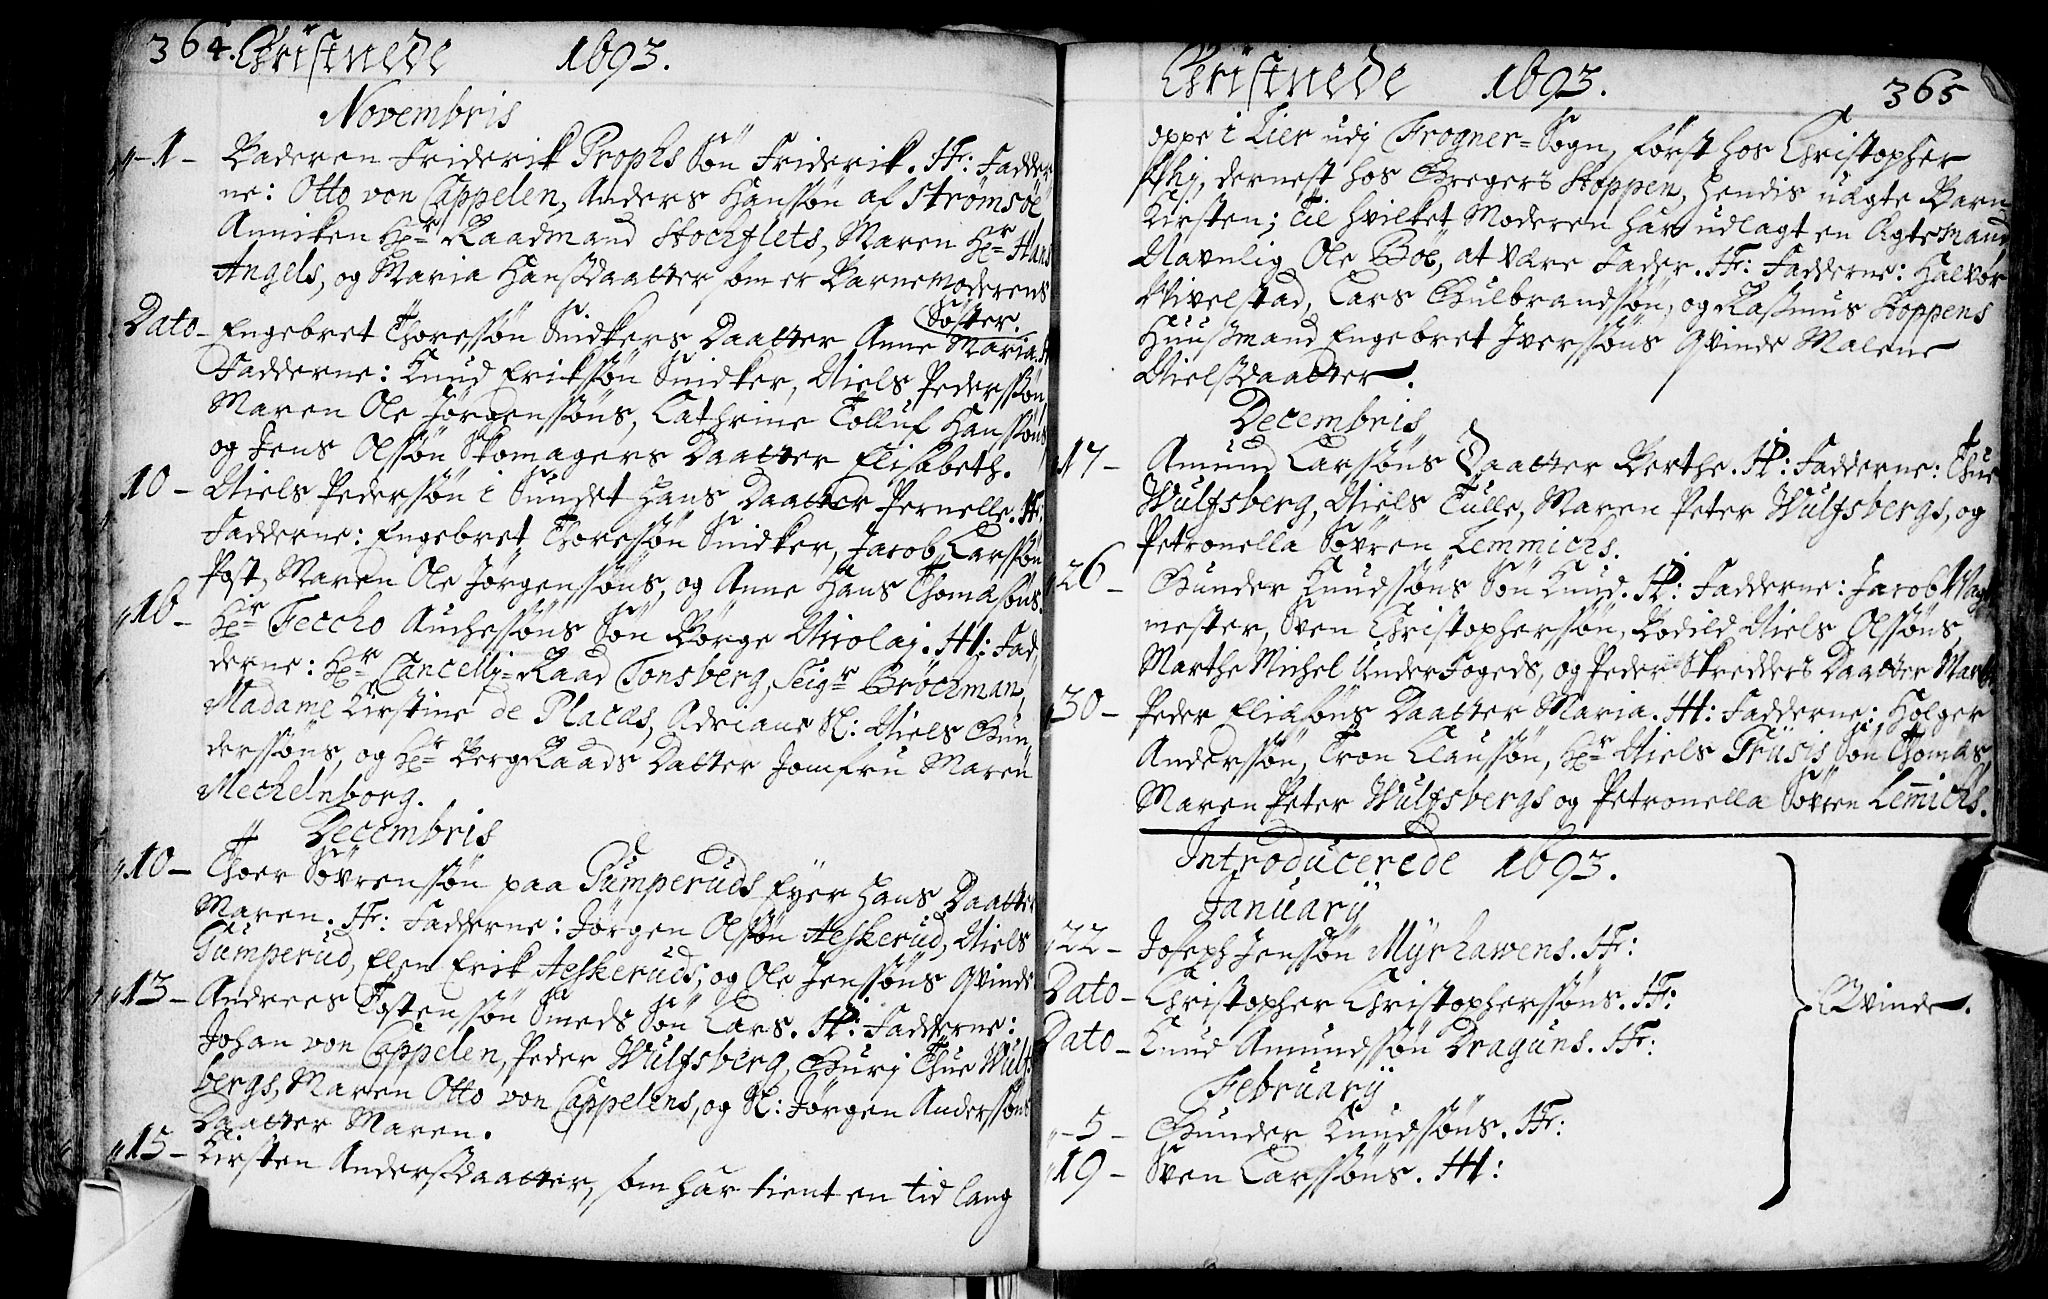 364. Christnede 1693.
Novembris
1 - Baderen Friderik Prophs Søn Friderik. Hr: Fadder
ne: Otto von Cappelen, Anders Hansøn af Strømsöe,
Anniken Hr Raadmand Stochflets, Maren Hr Hans
Angels, og Maria Hansdaatter som er Barnemoderens
Søster.
Dato - Engebret Thoresøn Snidkers Daatter Anne Maria.
Fadderne: Knud Eriksøn Snidker, Niels Pedersøn,
Maren Ole Jørgenssøns, Cathrine Tolluf Hanssøns
og Jens Olssøn Skomagers Daatter Elisabeth.
10 - Niels Pederssøn i Sundet hans Daatter Pernelle. Hr.
Fadderne: Engebret Thoressøn Snidker, Jacob Larssøn
Post, Maren Ole Jørgenssøns, og Anne Hans Thomasøns.
16 - Hr Feccho Auchessøns Søn Börge Nicolai. H: Fad
derne: Hr Cancellj-Raad Tonsberg, Seigr Bröchman,
Madame Kirstine de Placas, Adriane Sl: Niels Gun
derssøns, og Hr BergRaads Datter Jomfru Maren
Mechelnborg.
Decembris
10 - Thoer Sövrenssøn paa Pumperuds Eyer hans Daatter
Maren. Hr: Fadderne: Jörgen Olssøn Aeskerud, Niels
Gumperud, Elen Erik Aeskeruds, og Ole Jenssøns Qvinde
13 - Andrees Tostenssøn Smeds Søn Lars. H: Fadderne:
Johan von Cappelen, Peder Wulfsberg, Gurj Thue Wulfs
bergs, Maren Otto von Cappelens, og Sl: Jörgen Anderssøns
Daatter Maren.
15 - Kirsten Andersdaatter, som har tient en tid lang
Christnede 1693. 365
oppe i Lier udj Frogner-Sogn, först hos Christopher
dernest hos Gregers Stoppen, hendis uægte Barn
Kirsten; til hvilket Moderen har udlagt en Ægtemand
Navnlig Ole Böe, at være Fader. Hr: Fadderne: Halvor
Nivelstad, Lars Gulbrandssøn, og Rasmus Stoppens
Huusmand Engebret Jverssøns Qvinde Malene
Nielsdaatter.
Decembris
17 - Amund Larssøns Daatter Berthe. H: Fadderne: Thue
Wulfsberg, Niels Tulle, Maren Peter Wulfsbergs, og
Petronella Sövren Lemmichs.
26 - Gunder Knudssøns Søn Knud. H: Fadderne: Jacob
mester, Sven Christopherssøn, Bodild Niels Olssøns,
Marthe Michel UnderFogeds, og Peder Skredders Daatter
30 - Peder Eliasøns Daatter Maria. H: Fadderne: Holger
Anderssøn, Tron Claussøn, Hr Niels Friisis Søn Thomas,
Maren Peter Wulfsbergs og Petronella Sövren Lemichs.
Introducerede 1693.
Januarij
22 - Joseph Jenssøn Myrhawens. Hr:
Dato - Christopher Christopherssøns. Hr:
Qvinde.
Dato - Knud Amundssøn Draguns. Hr:
Februarij
5 - Gunder Knudssøns. Hr:
19 - Sven Larssøns. H: